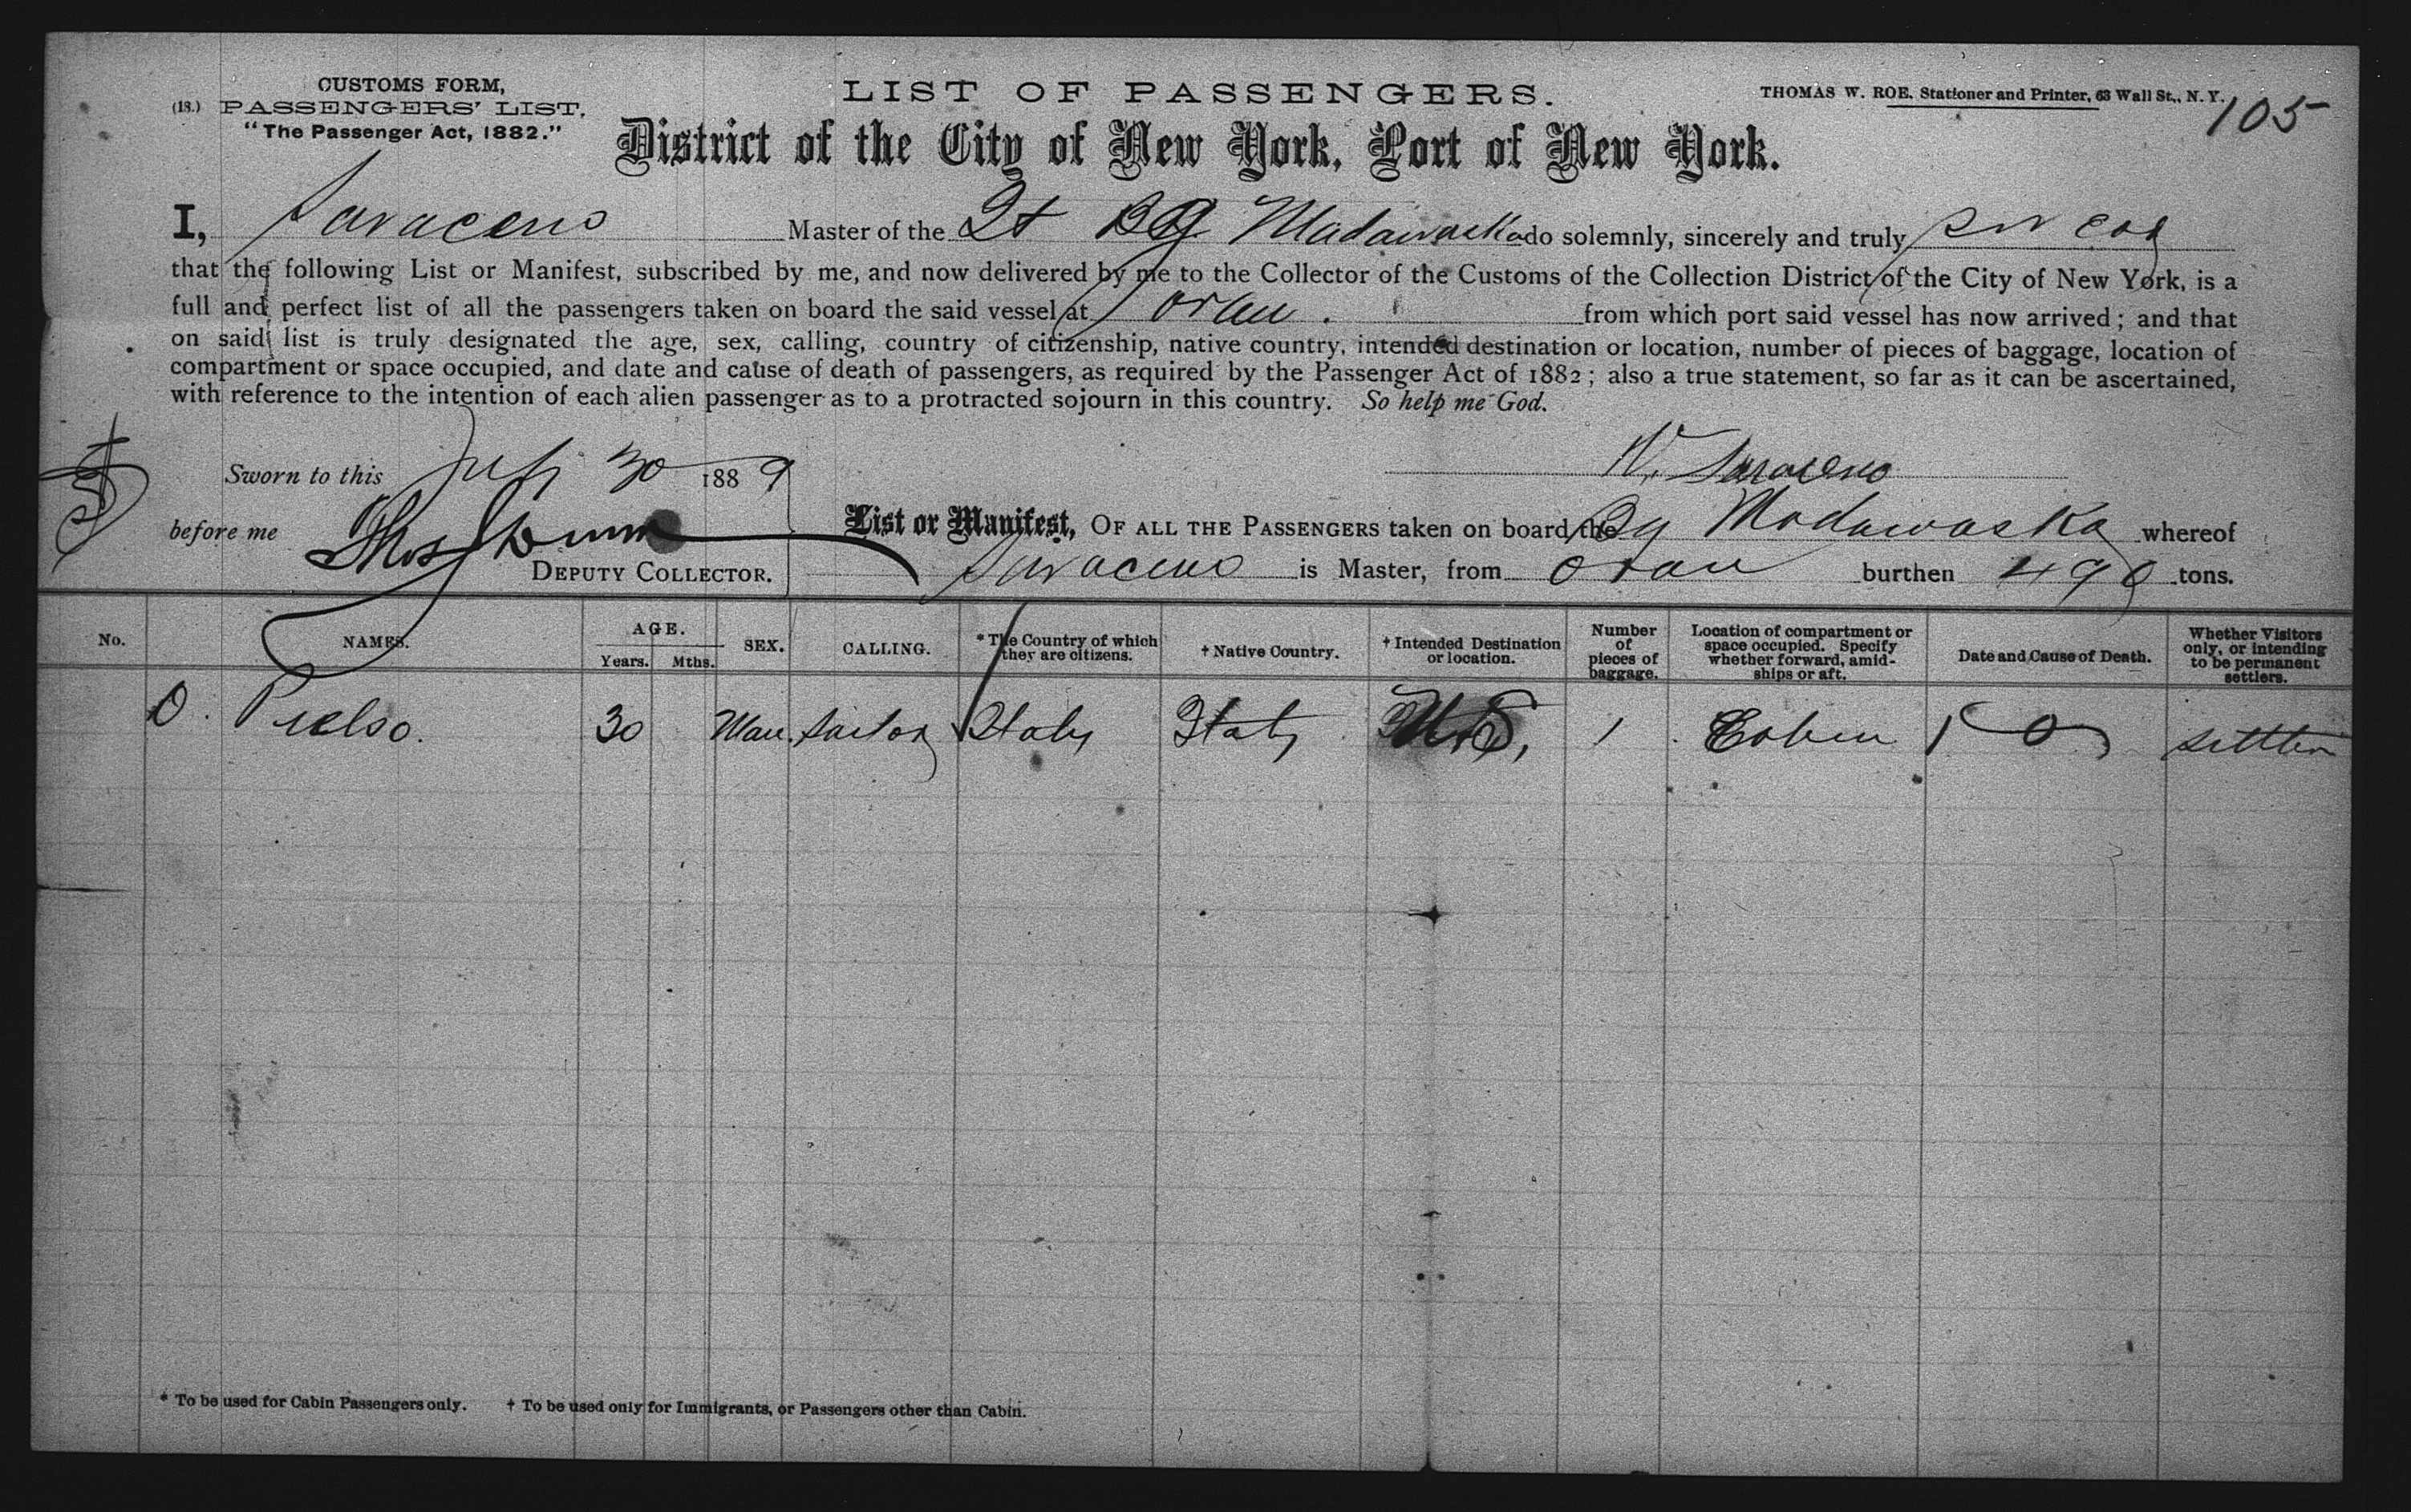 CUSTOMS FORM,
(18.) PASSENGERS' LIST,
"The Passenger Act, 1882."
LIST OF PASSENGERS.
THOMAS W. ROE. Stationer and Printer, 63 Wall St., N. Y.
105
District of the City of New York, Port of New York.
I, Saraceno Master of the It Bg Madawaska do solemnly, sincerely and truly
that the following List or Manifest, subscribed by me, and now delivered by me to the Collector of the Customs of the Collection District of the City of New York, is a
full and perfect list of all the passengers taken on board the said vessel at Oran. from which port said vessel has now arrived; and that
on said list is truly designated the age, sex, calling, country of citizenship, native country, intended destination or location, number of pieces of baggage, location of
compartment or space occupied, and date and cause of death of passengers, as required by the Passenger Act of 1882; also a true statement, so far as it can be ascertained,
with reference to the intention of each alien passenger as to a protracted sojourn in this country. So help me God.
Sworn to this July 30 1889
N. Saraceno
before me Thos Dunn
DEPUTY COLLECTOR.
List or Manifest, OF ALL THE PASSENGERS taken on board the Bg Madawaska whereof
Saraceno is Master, from Oran burthen 490 tons.
No. NAMES. AGE. Years. Mths. SEX. CALLING. * The Country of which they are citizens. † Native Country. † Intended Destination or location. Number of pieces of baggage. Location of compartment or space occupied. Specify whether forward, amidships or aft. Date and Cause of Death. Whether Visitors only, or intending to be permanent settlers.
O. 30 Man. Sailor Italy Italy U.S, 1 Cabin 0 settler
* To be used for Cabin Passengers only. † To be used only for Immigrants, or Passengers other than Cabin.